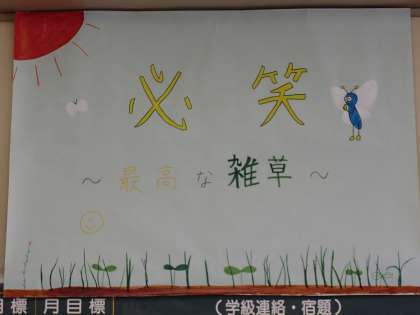 必笑
～最高な雑草～
月目標 月目標 （学級連絡・宿題）